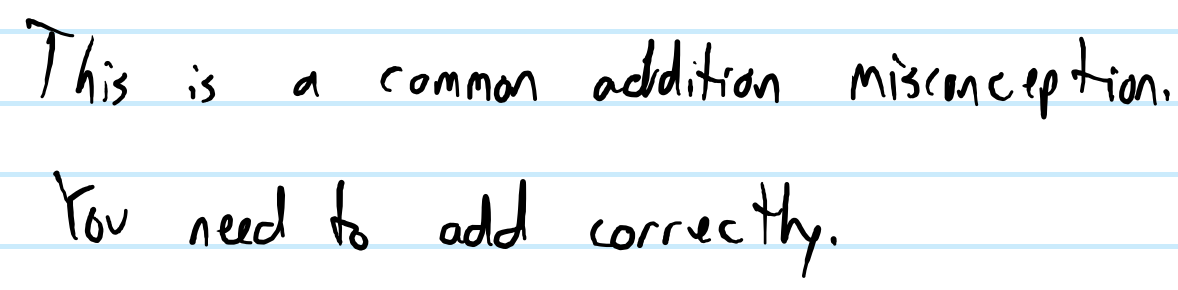 This is a common addition misconception.
You need to add correctly.